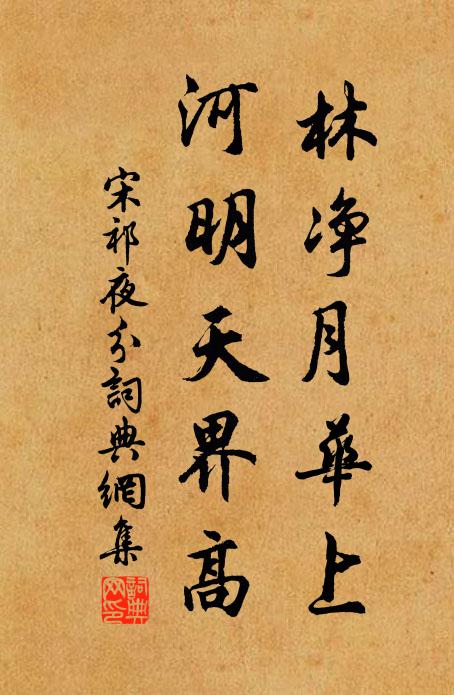 林净月華上
河明天界高
宋祁夜分詞典網集
詞典
网印